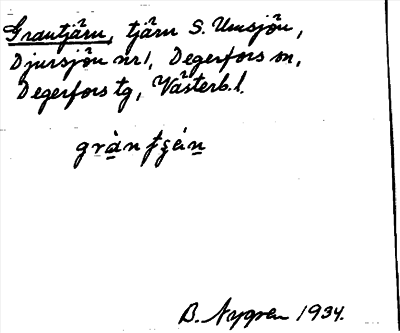 Grantjärn, tjärn S. Umsjön,
Djursjön nr 1, Degerfors sn,
Degerfors tg, Västerb. l.
B. Nygren 1934.